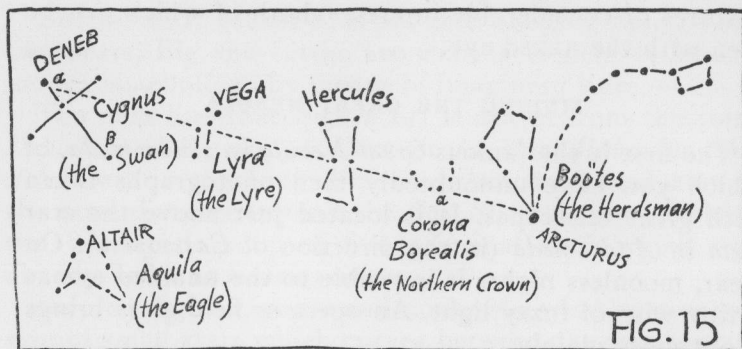 DENEB
α
Cygnus
β
(the Swan)
VEGA
Lyra
(the Lyre)
Hercules
α
Corona
Borealis
(the Northern Crown)
Bootes
(the Herdsman)
ARCTURUS
ALTAIR
Aquila
(the Eagle)
FIG. 15